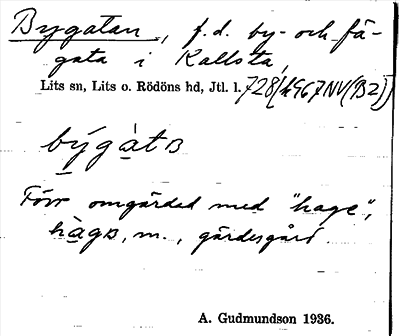 Bygatan, f.d. by- och fä-
gata i Kallsta,
Lits sn, Lits o. Rödöns hd, Jtl. l.
býgàtɞ
Förr omgärdad med "hage",
hàgɞ, m., gärdesgård.
A. Gudmundson 1936.